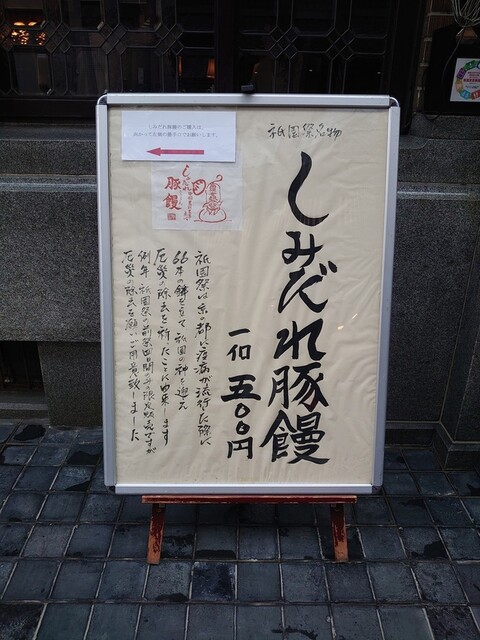 祇園祭名物
しみだれ豚饅
一個 五〇〇円
しみだれ豚饅のご購入は、
向かって左側の勝手口でお願いします。
しみだれ
豚饅
祇園祭は京の都に疫病が流行した際に
66本の鉾を立て祇園の神を迎え
厄災の除去を祈ったことに由来します
例年 祇園祭の前祭四日間のみの限定販売ですが
厄災の除去を願いご用意致しました